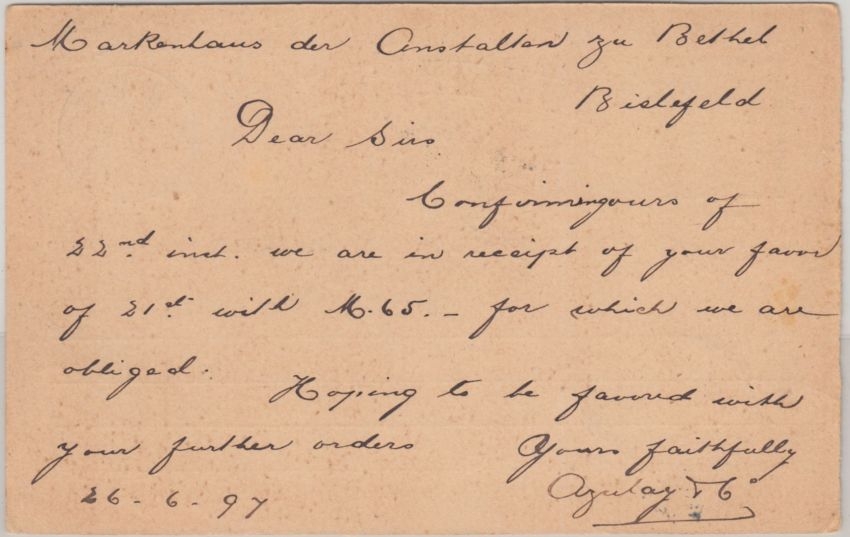 Markenhaus der Anstalten zu Bethel
Bielefeld
Dear Sirs
Confirming ours of
22nd inst. we are in receipt of your favor
of 21st with M. 65. – for which we are
obliged.
Hoping to be favored with
your further orders
Yours faithfully
26 - 6 - 97
Azulay & Co